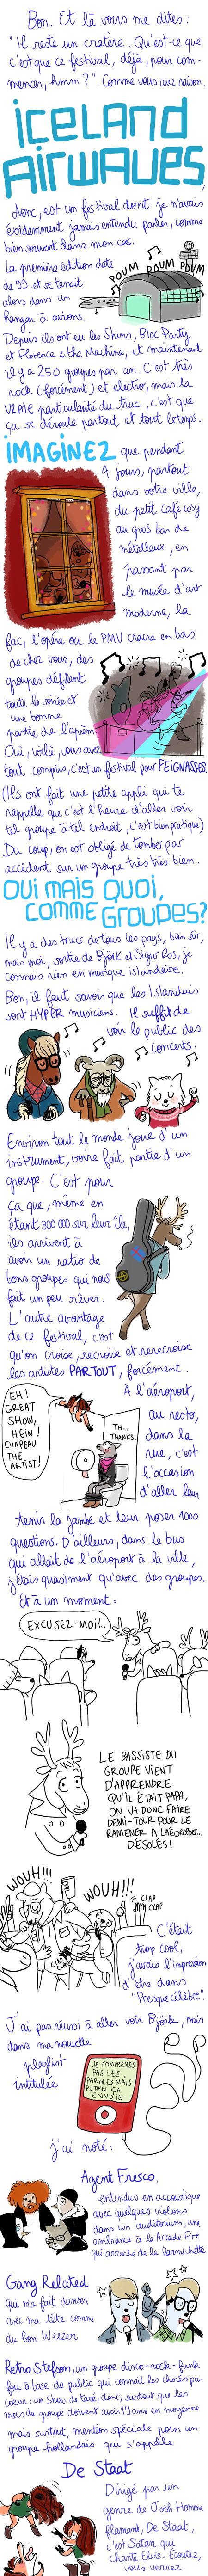 Bon. Et là vous me dites :
"Il reste un cratère. Qu'est-ce que
c'est que ce festival, déjà, pour com-
mencer, hmm ?". Comme vous avez raison.
ICELAND
AIRWAVES,
donc, est un festival dont je n'avais
évidemment jamais entendu parler, comme
bien souvent dans mon cas.
La première édition date
de 99, et se tenait
alors dans un
hangar à avions.
POUM POUM POUM
Depuis ils ont eu les Shins, Bloc Party
et Florence & the Machine, et maintenant
il y a 250 groupes par an. C'est très
rock (forcément) et electro, mais la
VRAIE particularité du truc, c'est que
ça se déroule partout et tout le temps.
IMAGINEZ que pendant
4 jours, partout
dans votre ville,
du petit café cosy
au gros bar de
métalleux, en
passant par
le musée d'art
moderne, la
fac, l'opéra ou le PMU crade en bas
de chez vous, des
groupes défilent
toute la soirée et
une bonne
partie de l'aprèm.
Oui, voilà, vous avez
tout compris, c'est un festival pour FEIGNASSES.
(Ils ont fait une petite appli qui te
rappelle que c'est l'heure d'aller voir
tel groupe à tel endroit, c'est bien pratique)
Du coup, on est obligé de tomber par
accident sur un groupe très très bien.
OUI MAIS QUOI,
COMME GROUPES?
Il y a des trucs de tous les pays, bien sûr,
mais moi, sortie de Björk et Sigur Ros, je
connais rien en musique islandaise.
Bon, il faut savoir que les Islandais
sont HYPER musiciens. Il suffit de
voir le public des
concerts.
Environ tout le monde joue d'un
instrument, voire fait partie d'un
groupe. C'est pour
ça que, même en
étant 300 000 sur leur île,
ils arrivent à
avoir un ratio de
bons groupes qui nous
fait un peu rêver.
L'autre avantage
de ce festival, c'est
qu'on croise, recroise et rerecroise
les artistes PARTOUT, forcément.
EH!
GREAT
SHOW,
HEIN!
CHAPEAU
THE
ARTIST!
TH...
THANKS.
À l'aéroport,
au resto,
dans la
rue, c'est
l'occasion
d'aller leur
tenir la jambe et leur poser 1000
questions. D'ailleurs, dans le bus
qui allait de l'aéroport à la ville,
j'étais quasiment qu'avec des groupes.
Et à un moment :
EXCUSEZ-MOI!...
LE BASSISTE DU
GROUPE VIENT
D'APPRENDRE
QU'IL ÉTAIT PAPA,
ON VA DONC FAIRE
DEMI-TOUR POUR LE
RAMENER À L'AÉROPORT...
DÉSOLÉS!
WOUH!!!
WOUH!!!
CLAP
CLAP
C'était
trop cool,
j'avais l'impression
d'être dans
"Presque célèbre".
J'ai pas réussi à aller voir Björk, mais
dans ma nouvelle
playlist
intitulée
JE COMPRENDS
PAS LES
PAROLES MAIS
PUTAIN ÇA
ENVOIE
j'ai noté :
Agent Fresco,
entendus en accoustique
avec quelques violons
dans un auditorium, une
ambiance à la Arcade Fire
qui arrache de la larmichette
Gang Related
qui m'a fait danser
avec ma tête comme
du bon Weezer
Retro Stefson, un groupe disco-rock-funk
fou à base de public qui connait les chorés par
coeur : un show de taré, donc, surtout que les
mecs du groupe doivent avoir 19 ans en moyenne
mais surtout, mention spéciale pour un
groupe hollandais qui s'appelle
De Staat
Dirigé par un
genre de Josh Homme
flamand, De Staat,
c'est Satan qui
chante Elvis. Écoutez,
vous verrez.